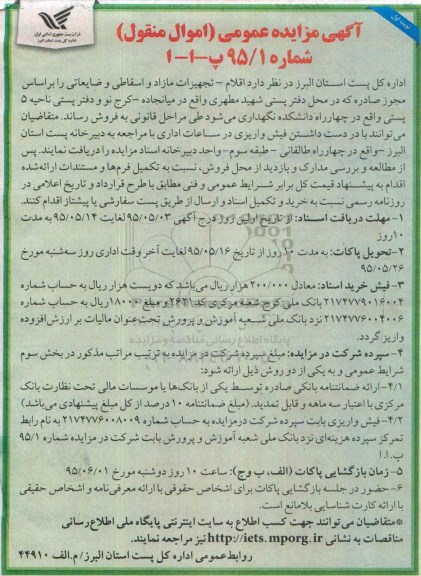 نوبت اول
شرکت پست جمهوری اسلامی ایران
اداره کل پست استان البرز
آگهی مزایده عمومی (اموال منقول)
شماره ۹۵/۱ پ-۱-۱
اداره کل پست استان البرز در نظر دارد اقلام – تجهیزات مازاد و اسقاطی و ضایعاتی را براساس
مجوز صادره که در محل دفتر پستی شهید مطهری واقع در میانجاده –کرج نو و دفتر پستی ناحیه ۵
پستی واقع در چهارراه دانشکده نگهداری می‌شود طی مراحل قانونی به فروش رساند. متقاضیان
می‌توانند با در دست داشتن فیش واریزی در ساعات اداری با مراجعه به دبیرخانه پست استان
البرز –واقع در چهارراه طالقانی – طبقه سوم-واحد دبیرخانه اسناد مزایده را دریافت نمایند. پس
از مطالعه و بررسی مدارک و بازدید از محل فروش، نسبت به تکمیل فرم‌ها و مستندات ارائه‌شده
اقدام به پیشنهاد قیمت کل برابر شرایط عمومی و فنی مطابق با طرح قرارداد و تاریخ اعلامی در
روزنامه رسمی نسبت به خرید و تکمیل اسناد و ارسال از طریق پست سفارشی یا پیشتاز اقدام کنند.
۱-مهلت دریافت اسناد: از تاریخ اولین روز درج آگهی ۹۵/۰۵/۰۳ لغایت ۹۵/۰۵/۱۴ به مدت
۱۰روز
۲-تحویل پاکات: به مدت ۱۰ روز از تاریخ ۹۵/۰۵/۱۶ لغایت آخر وقت اداری روز سه‌شنبه مورخ
۹۵/۰۵/۲۶
۳- فیش خرید اسناد: معادل ۲۰۰/۰۰۰ هزار ریال می‌باشد که دویست هزار ریال به حساب شماره
۲۱۷۴۷۷۹۰۱۶۰۰۴ بانک ملی کرج شعبه مرکزی کد ۲۶۲۱ و مبلغ ۱۸۰۰۰ ریال به حساب شماره
۲۱۷۴۷۷۶۰۰۴۰۰۶ نزد بانک ملی شعبه آموزش و پرورش تحت‌عنوان مالیات بر ارزش‌افزوده
واریز گردد.
۴- سپرده شرکت در مزایده: مبلغ سپرده شرکت در مزایده به ترتیب مراتب مذکور در بخش سوم
شرایط عمومی و به یکی از دو روش ذیل ارائه شود:
۴/۱- ارائه ضمانتنامه بانکی صادره توسط یکی از بانک‌ها یا موسسات مالی تحت نظارت بانک
مرکزی با اعتبار سه ماهه و قابل تمدید. (مبلغ ضمانتنامه ۱۰ درصد از کل مبلغ پیشنهادی می‌باشد)
۴/۲- فیش واریزی بابت سپرده شرکت درمزایده به حساب شماره ۲۱۷۴۷۷۶۰۰۸۰۰۹ به نام رابط
تمرکز سپرده هزینه‌ای نزد بانک ملی شعبه آموزش و پرورش بابت شرکت در مزایده شماره ۹۵/۱
پ.۱.۱
۵- زمان بازگشایی پاکات (الف، ب و ج): ساعت ۱۰ روز دوشنبه مورخ ۹۵/۰۶/۰۱
۶- حضور در جلسه بازگشایی پاکات برای اشخاص حقوقی با ارائه معرفی‌نامه و اشخاص حقیقی
با ارائه کارت شناسایی بلامانع است.
*متقاضیان می‌توانند جهت کسب اطلاع به سایت اینترنتی پایگاه ملی اطلاع‌رسانی
مناقصات به نشانی http://iets.mporg.ir نیز مراجعه نمایند.
روابط عمومی اداره کل پست استان البرز / م.الف ۴۴۹۱۰